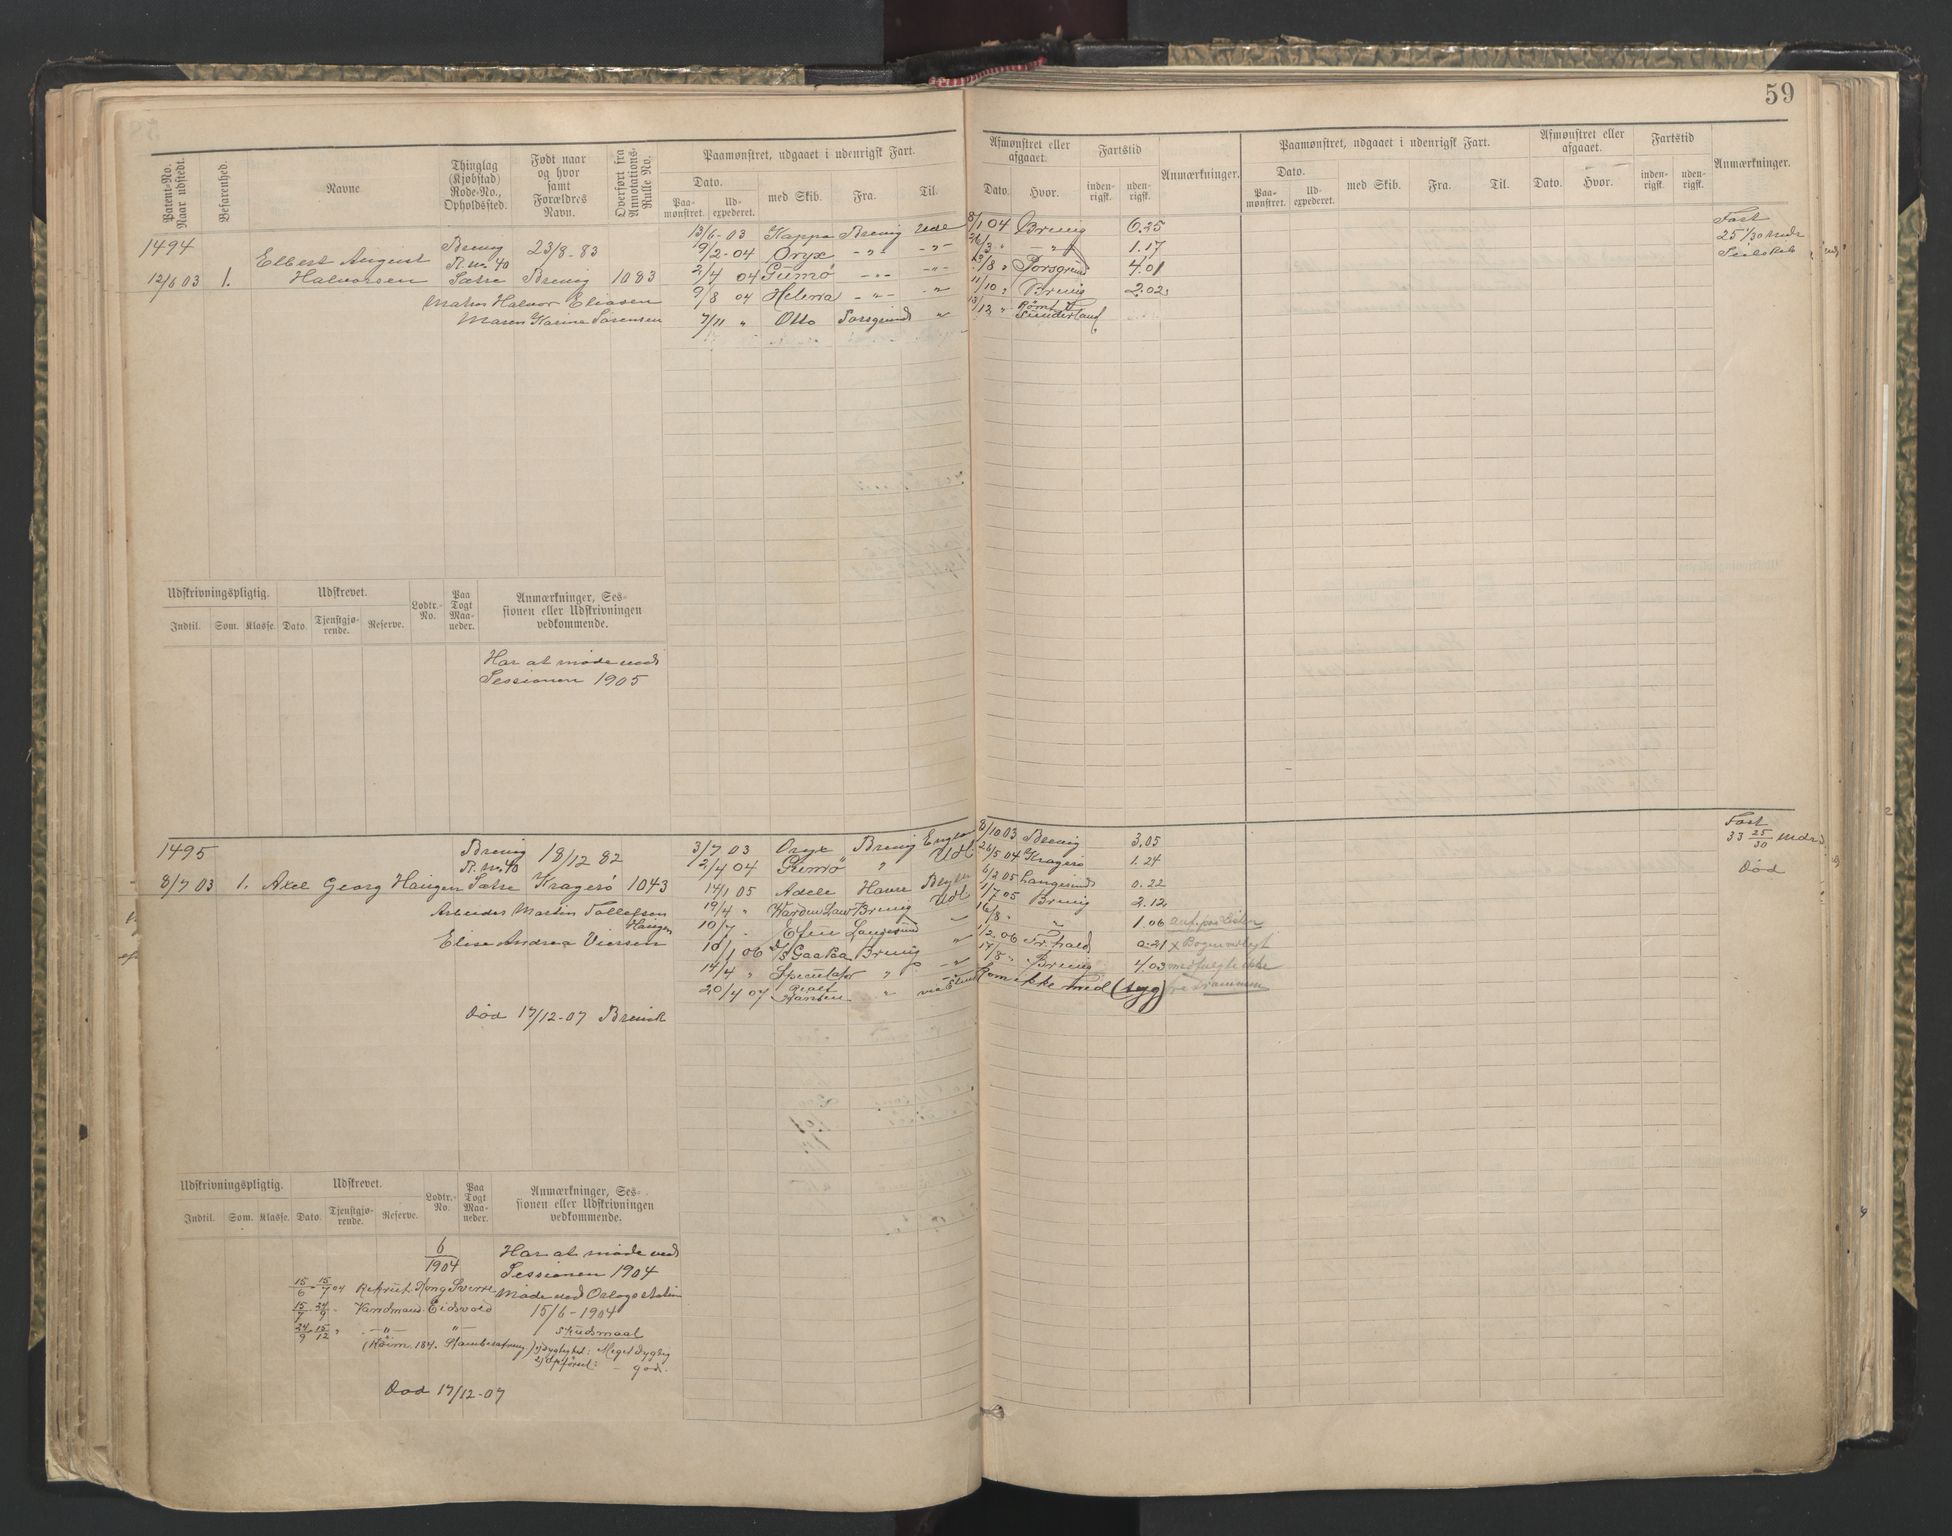 59
Patent-No. Naar udstedt.
Befarenhed.
Navne
Thinglag (Kjøbstad) Rode-No., Opholdssted.
Født naar og hvor samt Forældres Navn.
Overført fra Annotations-Rulle No.
Paamønstret, udgaaet i udenrigsk Fart.
Dato.
Paamønstret.
Udexpederet.
med Skib.
Fra.
Til.
Afmønstret eller afgaaet.
Dato.
Hvor.
Fartstid
indenrigsk.
udenrigsk.
Anmærkninger.
Paamønstret, udgaaet i udenrigsk Fart.
Dato.
Paamønstret.
Udexpederet.
med Skib.
Fra.
Til.
Afmønstret eller afgaaet.
Dato.
Hvor.
Fartstid
indenrigsk.
udenrigsk.
Anmærkninger.
1494
12/6 03 1.
Elbert August
Halvorsen
Brevig
R. No. 40
Sætre
23/8-83
Brevig 1083
Matros Halvor Eliasen
Maren Karine Sørensen
13/6-03 Kappa Brevig Udl 8/1 04 Brevig 6.25
9/2-04 Oryx -"- -"- 26/3 " -"- 1.17
2/4 04 Gumø -"- -"- /8 " Porsgrund 4.01
9/8 04 Helena -"- " 11/10 " Brevig 2.02
7/11 " Otto Porsgrund " 13/12 " Rømt Sunderland
Fart
Udskrivningspligtig.
Udskrevet.
Indtil.
Som.
Klasse.
Dato.
Tjenstgjørende.
Reserve.
Lodtr.-No.
Paa Togt Maaneder.
Anmærkninger, Sessionen eller Udskrivningen vedkommende.
Har at møde ved
Sessionen 1905
1495
8/7 03 1. Axel Georg Haugen
Brevig
R. No. 40
Sætre
18/12 82
Kragerø 1043
Arbeider Martin Tollefsen
Haugen
Elise Andrea Viersen
Død 17/12-07 Brevik
3/7 03 Oryx Brevig 8/10 03 Brevig 3.05
2/4 04 Gumø " Udl 26/5 04 Kragerø 1.24
14/1 05 Adele Havre 6/2 05 Langesund 0.22
19/4 " Brevig Udl 1/7 05 Brevig 2.12
10/7 Langesund 16/8 " " 1.06
10/1 06 Brevig " 1/2 06 Fr.hald 0.21
14/4 " Speculator " " 17/8 " Brevig 4.03 medfulgte ikke
20/4 07 " Kom ikke med (syg)
Fart
33 25/30 Mdr
Død
Udskrivningspligtig.
Udskrevet.
Indtil.
Som.
Klasse.
Dato.
Tjenstgjørende.
Reserve.
Lodtr.-No.
Paa Togt Maaneder.
Anmærkninger, Sessionen eller Udskrivningen vedkommende.
6/1904
Har at møde ved
Sessionen 1904
15/6 - 15/7 04 Rekrut Kong Sverre
Møde ved Oslogstation
15/7 - 24/9 " Vandmand Eidsvold
15/6-1904
24/9 - 15/12 " -"- -"-
Skudsmaal
1) Dygtighed: Meget dygtig
2) Opførsel: - god.
Død 17/12-07